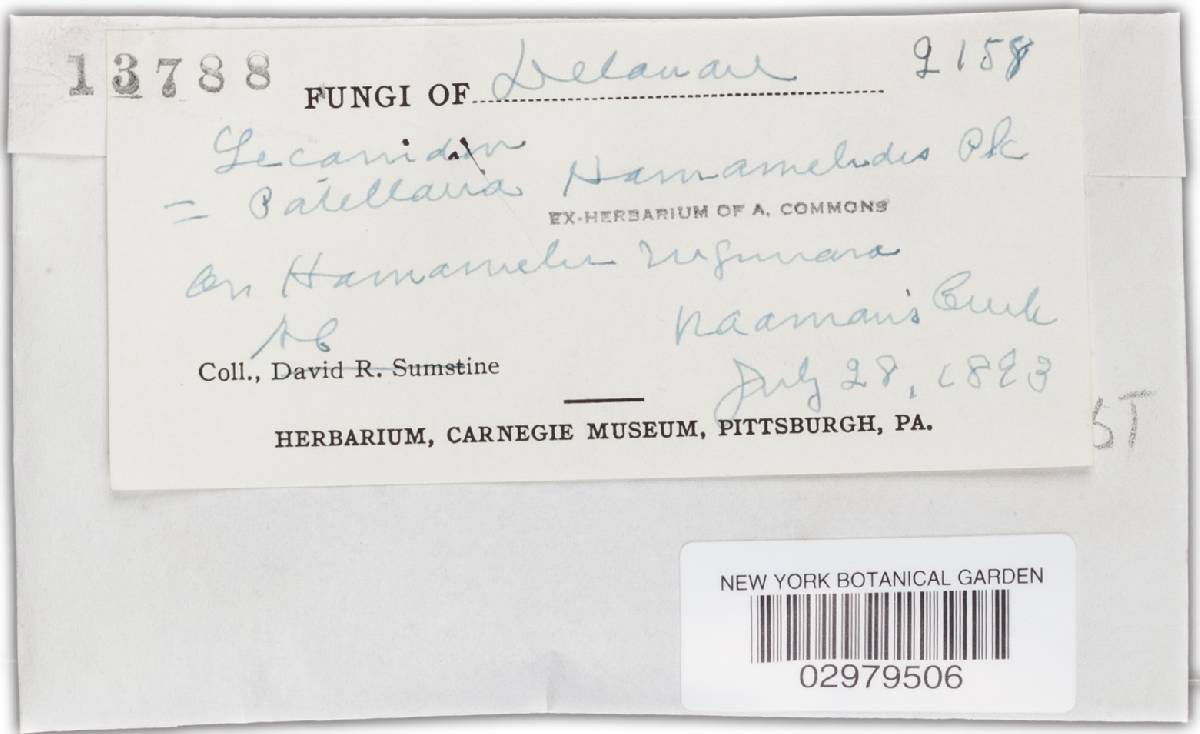 13788
FUNGI OF Delaware 2158
Lecanidion
= Patellaria Hamamelidis Pk
EX-HERBARIUM OF A. COMMONS
on Hamamelis virginiana
Naaman's Creek
AC
Coll., David R. Sumstine
July 28, 1893
HERBARIUM, CARNEGIE MUSEUM, PITTSBURGH, PA.
NEW YORK BOTANICAL GARDEN
02979506